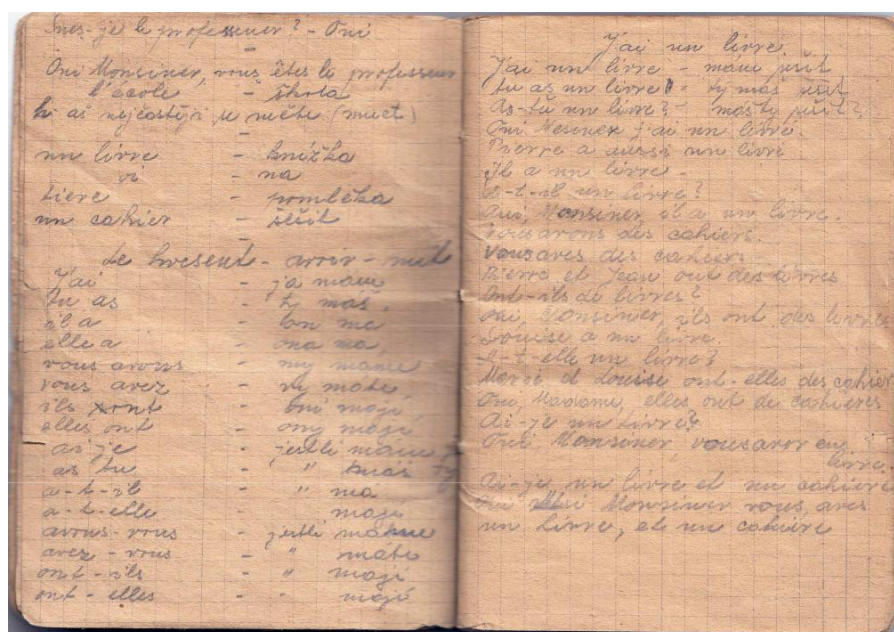 Sues-je le professeur? - Oui
Oui Monsiner, vous êtes le professeur
l'école - škola
un livre - knížka
- na
tiere
un cahier - sešit
Le present - avoir - mít
J'ai - ja mam
tu as - ty maš
il a - on ma
elle a - ona ma
vous avons - my mame
vous avez - vy mate
ils ont - oni mají
elles ont - ony mají
ai je - jestli mam
as tu - " maš ty
a-t-il - " ma
a-t-elle - mají
avons-vous - jestli máme
avez-vous - " mate
ont-ils - " mají
ont-elles - " mají
J'ai un livre.
J'ai un livre - mám
tu as un livre - ty maš
As-tu un livre? - máš ty
Oui Mesiner j'ai un livre.
Pierre a aussi un livre
Il a un livre -
a-t-il un livre?
Oui, Monsiner, il a un livre.
avons des cahiers.
Vous aves des cahiers
Pierre et Jean ont des livres
Ont-ils de livres?
Oui Monsiner, ils ont des livres
Louise a un livre.
A-t-elle un livre?
et Louise ont-elles des cahier
Oui, Madame, elles ont de cahieres
Ai-je un livre?
Oui, Monsiner, vous
livre
Ai-je un livre et un cahiere
Monsiner vous, aves
un livre, et un cahiere